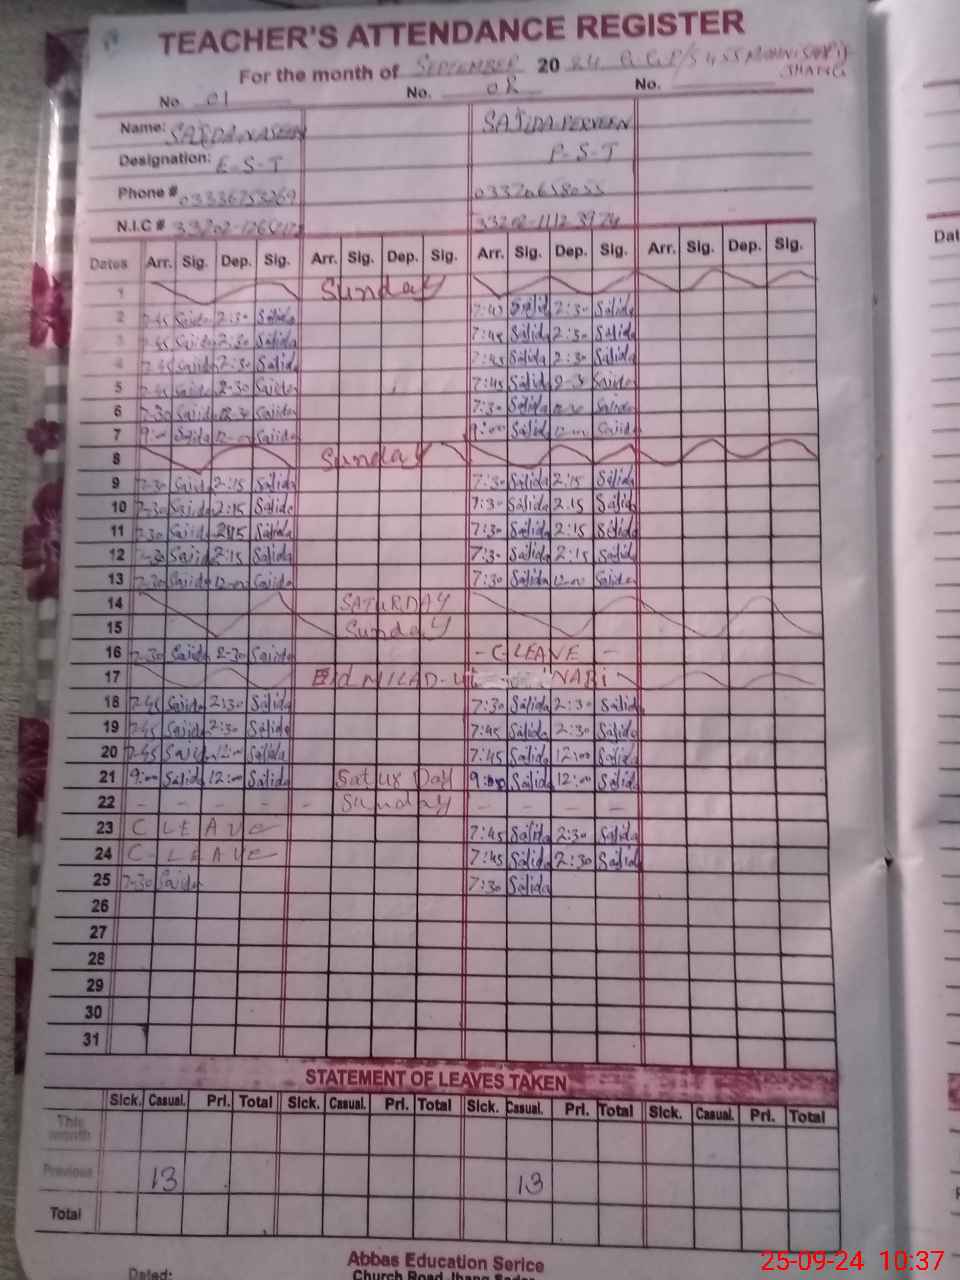 TEACHER'S ATTENDANCE REGISTER
For the month of SEPTEMBER 20 24
JHANG
No. 01 No. 02 No.
Name: SAJIDA NASEEM SAJIDA PERVEEN
Designation: E-S-T P-S-T
Phone #
N.I.C #
Dates Arr. Sig. Dep. Sig. Arr. Sig. Dep. Sig. Arr. Sig. Dep. Sig. Arr. Sig. Dep. Sig.
1 Sunday
2 7-45 Sajida 2:30 Sajida 7:45 Sajida 2:30 Sajida
3 7-45 Sajida 2:30 Sajida 7:45 Sajida 2:30 Sajida
4 7-45 Sajida 2:30 Sajida 7:45 Sajida 2:30 Sajida
5 7-45 Sajida 2-30 Sajida 7:45 Sajida Sajida
6 7-30 Sajida Sajida 7:30 Sajida Sajida
7 9:00 Sajida 12-00 Sajida 9:00 Sajida 12-00 Sajida
8 Sunday
9 7-30 Sajida 2:15 Sajida 7:30 Sajida 2:15 Sajida
10 7-30 Sajida 2:15 Sajida 7:30 Sajida 2:15 Sajida
11 7-30 Sajida 2:15 Sajida 7:30 Sajida 2:15 Sajida
12 7-30 Sajida 2:15 Sajida 7:30 Sajida 2:15 Sajida
13 7-30 Sajida 12-00 Sajida 7:30 Sajida 12-00 Sajida
14 SATURDAY
15 Sunday
16 7-30 Sajida 2-30 Sajida - C-LEAVE -
17 Eid MILAD-ui NABi
18 7-45 Sajida 2:30 Sajida 7:30 Sajida 2:30 Sajida
19 7-45 Sajida 2:30 Sajida 7:45 Sajida 2:30 Sajida
20 7-45 Sajida 12:00 Sajida 7:45 Sajida 12:00 Sajida
21 9:00 Sajida 12:00 Sajida Satur Day 9:00 Sajida 12:00 Sajida
22 - - - - - Sunday - - - -
23 C LEAVE 7:45 Sajida 2:30 Sajida
24 C-LEAVE 7:45 Sajida 2:30 Sajida
25 7-30 Sajida 7:30 Sajida
26
27
28
29
30
31
STATEMENT OF LEAVES TAKEN
Sick. Casual. Pri. Total Sick. Casual. Pri. Total Sick. Casual. Pri. Total Sick. Casual. Pri. Total
This month
Previous 13 13
Total
Abbas Education Serice
Dated: Church Road Jhang Sadar
Dat
25-09-24 10:37